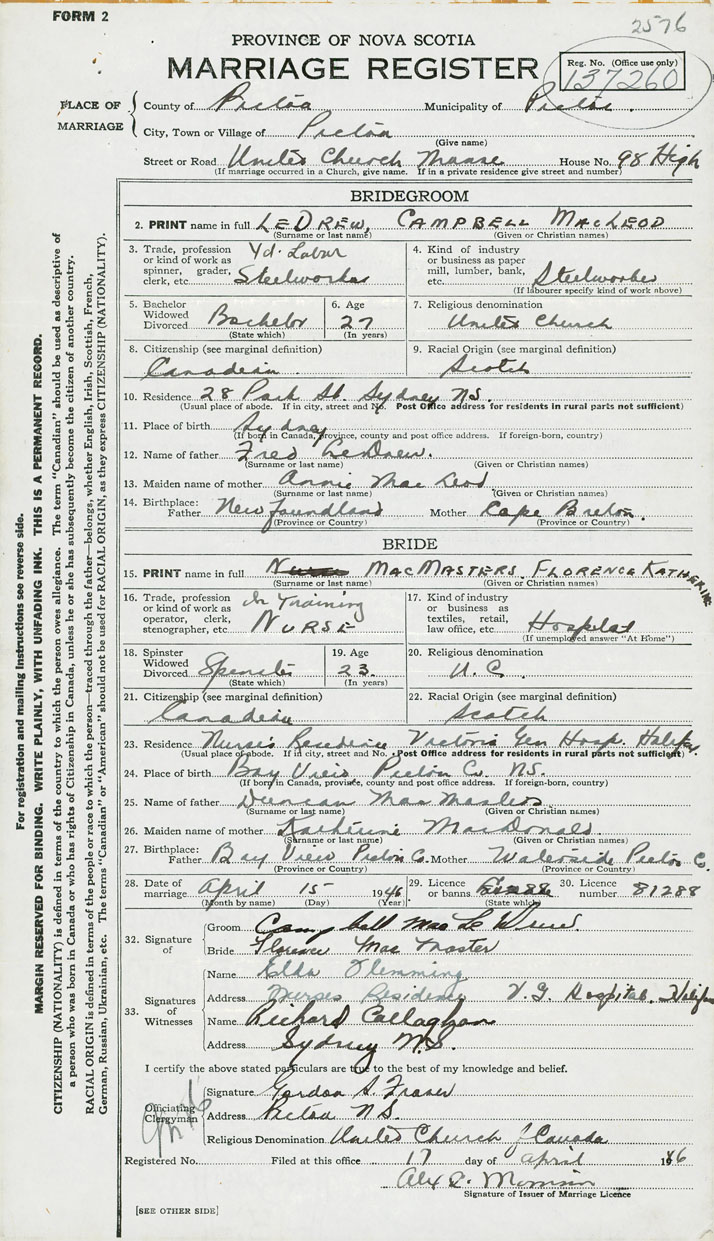 FORM 2
2576
PROVINCE OF NOVA SCOTIA
MARRIAGE REGISTER
Reg. No. (Office use only)
137260
PLACE OF MARRIAGE
County of Pictou Municipality of Pictou.
City, Town or Village of Pictou
(Give name)
Street or Road United Church Manse House No. 98 High
(If marriage occurred in a Church, give name. If in a private residence give street and number)
BRIDEGROOM
2. PRINT name in full LEDREW, CAMPBELL MACLEOD
(Surname or last name) (Given or Christian names)
3. Trade, profession or kind of work as spinner, grader, clerk, etc. Yd. Labor Steelworker
4. Kind of industry or business as paper mill, lumber, bank, etc. Steelworker
(If labourer specify kind of work above)
5. Bachelor Widowed Divorced Bachelor
(State which)
6. Age 27
(In years)
7. Religious denomination
United Church
8. Citizenship (see marginal definition)
Canadian
9. Racial Origin (see marginal definition)
Scotch
10. Residence 28 Park St. Sydney N.S.
(Usual place of abode. If in city, street and No. Post Office address for residents in rural parts not sufficient)
11. Place of birth Sydney
(If born in Canada, province, county and post office address. If foreign-born, country)
12. Name of father Fred LeDrew.
(Surname or last name) (Given or Christian names)
13. Maiden name of mother Annie Mac Leod
(Surname or last name) (Given or Christian names)
14. Birthplace: Father Newfoundland Mother Cape Breton.
(Province or Country) (Province or Country)
BRIDE
15. PRINT name in full MACMASTERS, FLORENCE KATHERINE
(Surname or last name) (Given or Christian names)
16. Trade, profession or kind of work as operator, clerk, stenographer, etc In Training NURSE
17. Kind of industry or business as textiles, retail, law office, etc. Hospital
(If unemployed answer "At Home")
18. Spinster Widowed Divorced Spinster
(State which)
19. Age 23.
(In years)
20. Religious denomination
U.C.
21. Citizenship (see marginal definition)
Canadian
22. Racial Origin (see marginal definition)
Scotch
23. Residence Nurse's Residence Victoria Gen Hosp. Halifax.
(Usual place of abode. If in city, street and No. Post Office address for residents in rural parts not sufficient)
24. Place of birth Bay View Pictou Co. N.S.
(If born in Canada, province, county and post office address. If foreign-born, country)
25. Name of father Duncan Mac Masters
(Surname or last name) (Given or Christian names)
26. Maiden name of mother Katherine MacDonald
(Surname or last name) (Given or Christian names)
27. Birthplace: Father Bay View Pictou Co. Mother Waterside Pictou C.
(Province or Country) (Province or Country)
28. Date of marriage April 15 1946
(Month by name) (Day) (Year)
29. Licence or banns
(State which)
30. Licence number 81288
32. Signature of
Groom Campbell Mac Le Drew
Bride Florence Mac Master
33. Signatures of Witnesses
Name Elda Flemming
Address Nurses Residence V.G. Hospital, Halifax
Name Richard Callaghan
Address Sydney N.S.
I certify the above stated particulars are true to the best of my knowledge and belief.
Officiating Clergyman
Signature Gordon S. Fraser
Address Pictou N.S.
Religious Denomination United Church of Canada
Registered No. Filed at this office 17 day of April 1946
Signature of Issuer of Marriage Licence
[SEE OTHER SIDE]
For registration and mailing instructions see reverse side.
MARGIN RESERVED FOR BINDING. WRITE PLAINLY, WITH UNFADING INK. THIS IS A PERMANENT RECORD.
CITIZENSHIP (NATIONALITY) is defined in terms of the country to which the person owes allegiance. The term "Canadian" should be used as descriptive of
a person who was born in Canada or who has rights of Citizenship in Canada, unless he or she has subsequently become the citizen of another country.
RACIAL ORIGIN is defined in terms of the people or race to which the person—traced through the father—belongs, whether English, Irish, Scottish, French,
German, Russian, Ukrainian, etc. The terms "Canadian" or "American" should not be used for RACIAL ORIGIN, as they express CITIZENSHIP (NATIONALITY).